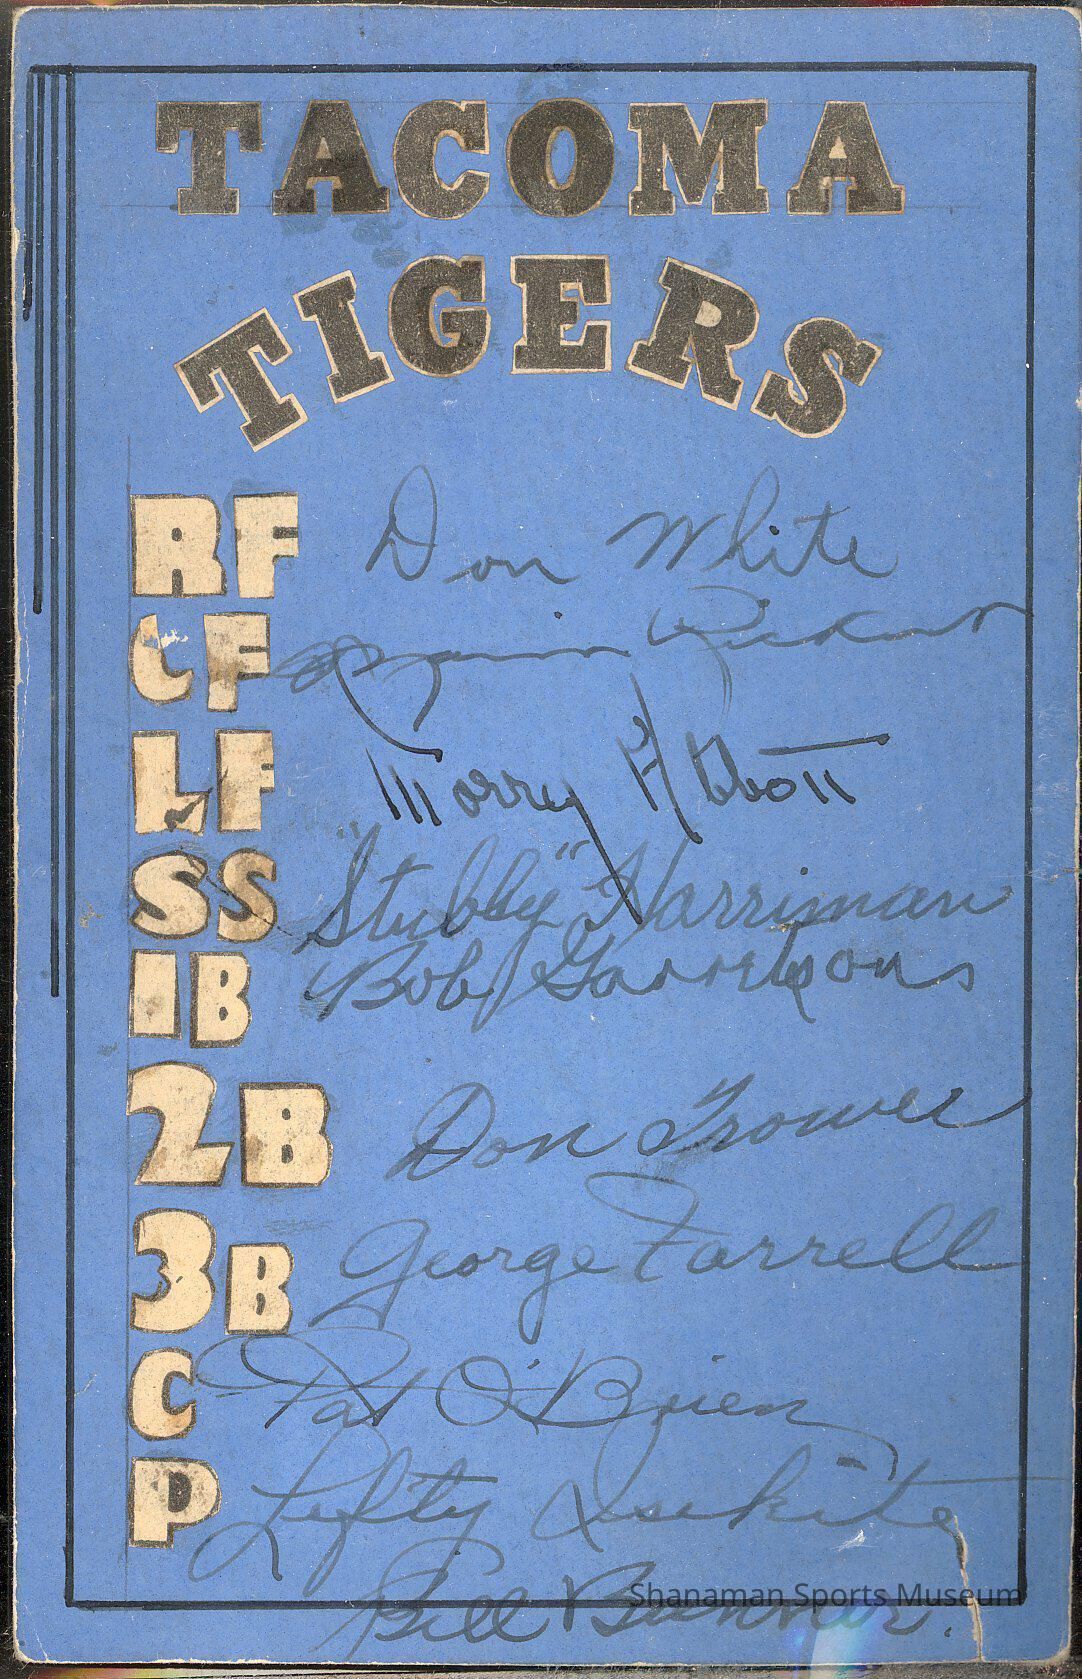 TACOMA
TIGERS
RF Don White
CF
LF Morry Abbott
SS "Stubby" Harriman
1B Bob Garretsons
2B Don Trower
3B George Farrell
C Pat O'Brien
P Lefty Isekite
Bill
Shanaman Sports Museum